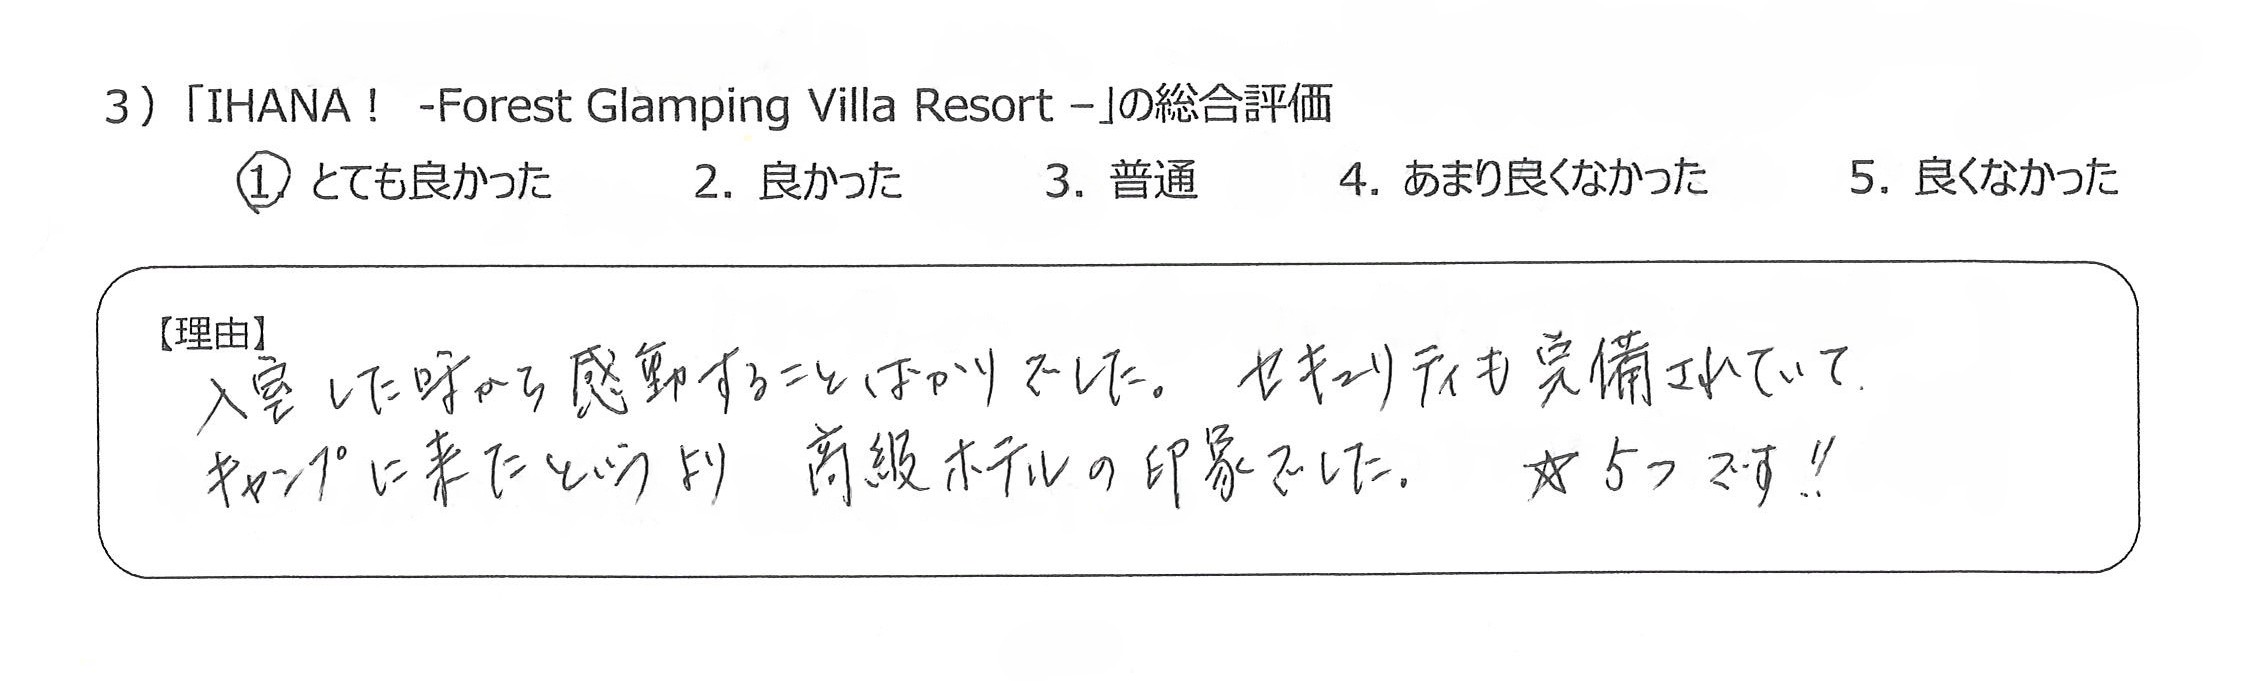 3）「IHANA！ -Forest Glamping Villa Resort –」の総合評価
1. とても良かった 2. 良かった 3. 普通 4. あまり良くなかった 5. 良くなかった
【理由】
入室した時から感動することばかりでした。 セキュリティも完備されていて
キャンプに来たというより 高級ホテルの印象でした。 ☆5つです!!